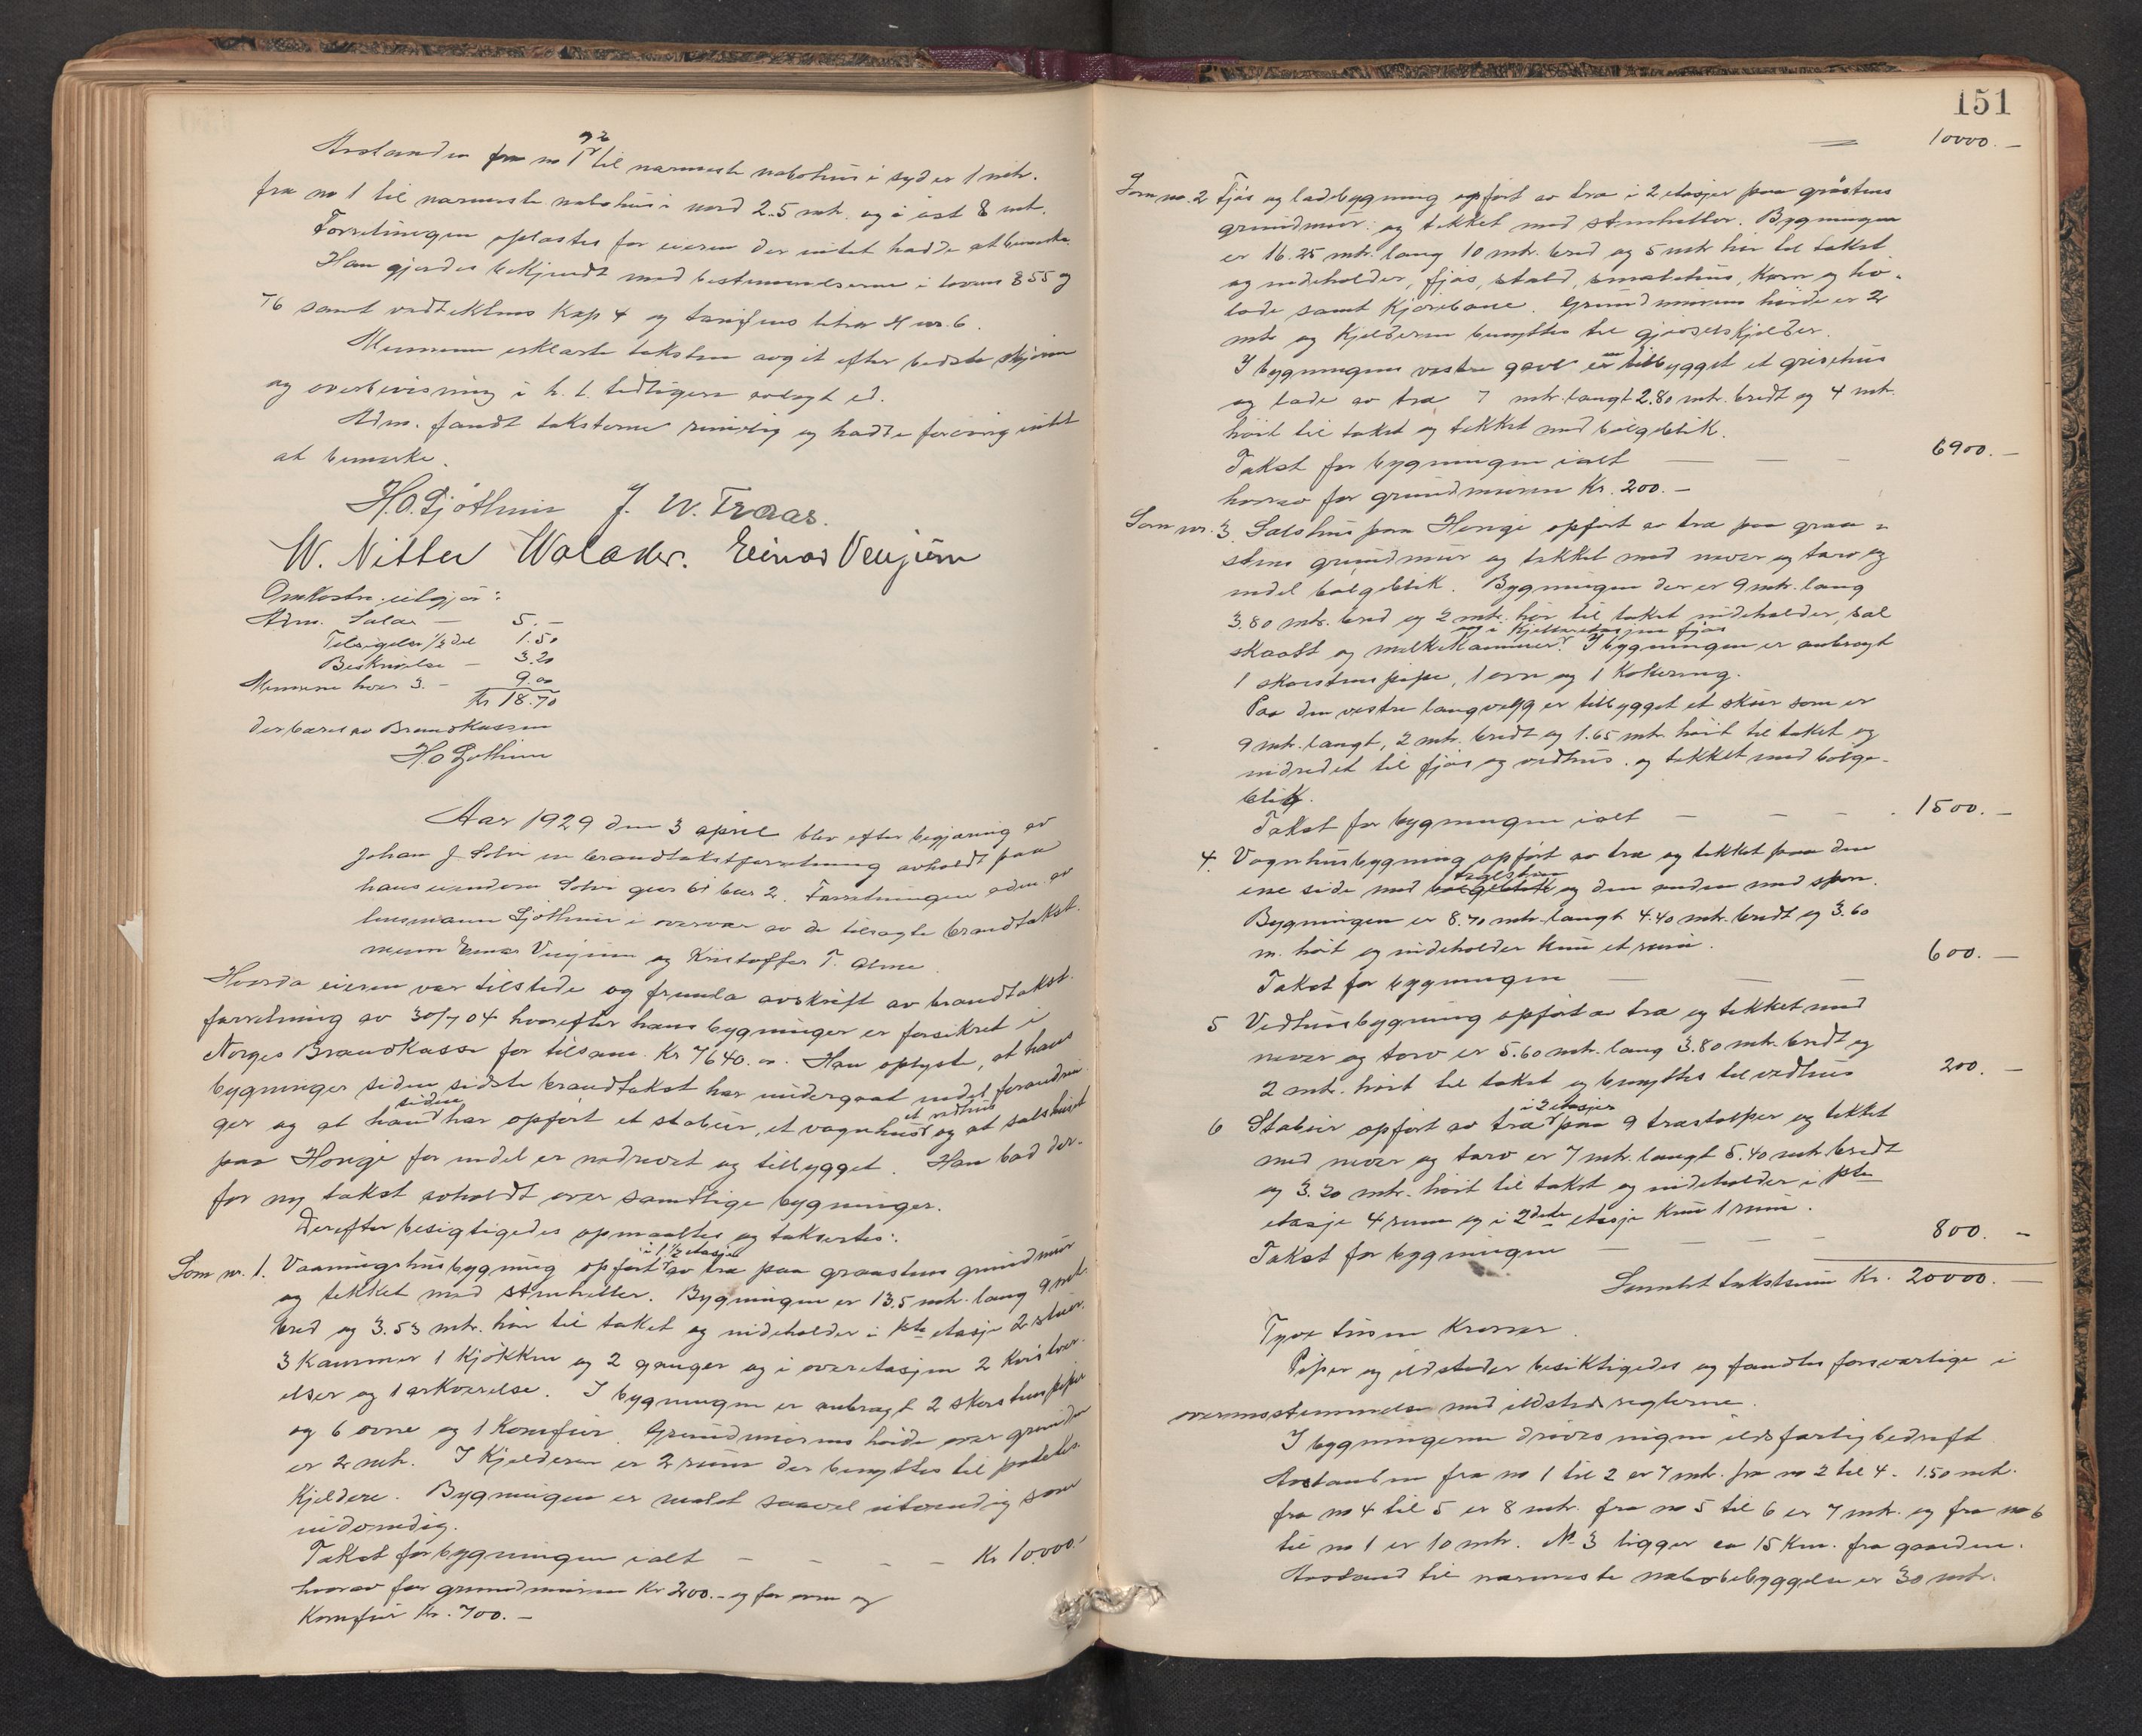 og 2
Avstanden fra no 1 til nærmeste nabohus i syd er 1 mtr.
fra no 1 til nærmeste nabohus i nord 2.5 mtr. og i øst 8 mtr.
Forretningen oplæstes for eieren der intet hadde at bemerke.
Han gjordes bekjendt med bestemmelserne i lovens § 55 og
76 samt vedtektenes Kap 4 og tarifens litra H nr. 6.
Mennene erklærte taksten avgit efter bedste skjønn
og overbevisning i h. t. tidligere avlagt ed.
Adm. fandt taksterne rimelig og hadde forøvrig intet
at bemerke.
H.O. Ljøthun J. W. Traas.
W. Nitter Walaker. Einar Venjum
Omkostn. utgjør:
Adm. Salær — 5.—
Tilsigelse 1/2 del 1.50
Beskrivelse — 3.20
Mennene hver 3.— 9.00
Kr 18.70
der bæres av Brandkassen
H.O Ljøthun
Aar 1929 den 3 april blev efter begjæring av
Johan J. Solvi en brandtakstforretning avholdt paa
hans eiendom Solvi gnr 61 bnr 2. Forretningen adm. av
lensmann Ljøthun i overvær av de tilsagte brandtakst-
menn Einar Venjum og Kristoffer T. Alme.
Hvorda eieren var tilstede og fremla avskrift av brandtakst-
forretning av 30/7 04 hvorefter hans bygninger er forsikret i
Norges Brandkasse for tilsam. Kr 7640.00. Han oplyste, at hans
bygninger siden sidste brandtakst har undergaat endel forandrin-
ger og at han siden har opført et stabur, et vognhus et vedhus og at selshuset
paa Honge for endel er nedrevet og tilbygget. Han bad der-
for ny takst avholdt over samtlige bygninger.
Derefter besigtigedes opmaaltes og taksertes:
Som nr. 1. Vaaningshusbygning opført i 1 1/2 etasje av træ paa graastens grundmur
og tekket med stenheller. Bygningen er 13.5 mtr. lang 9 mtr.
bred og 3.53 mtr. høi til taket og indeholder i 1ste etasje 2 stuer.
3 Kammer 1 Kjøkken og 2 ganger og i overetasjen 2 Kvistvær-
elser og 1 arkværelse. I bygningen er anbragt 2 skorstenspiper
og 6 ovne og 1 Komfur. Grundmurens høide over grunden
er 2 mtr. I Kjelderen er 2 rum der benyttes til potetes-
Kjeldere. Bygningen er malet saavel utvendig som
indvendig.
Takst for bygningen ialt — — — — Kr 10.000.-
hvorav for grundmuren Kr 200.- og for ovne og
Komfur Kr. 700.—
151
10000.—
Som no. 2 Fjøs og ladebygning opført av træ i 2 etasjer paa graastens
grundmur og tekket med stenheller. Bygningen
er 16.25 mtr. lang 10 mtr. bred og 5 mtr høi til taket
og indeholder, fjøs, stald, smalehus, Korn og hø-
lade samt Kjørebane. Grundmurens høide er 2
mtr og Kjelderen benyttes til gjødselskjelder.
I bygningens vestre gavl er tilbygget et grisehus
og lade av træ 7 mtr. langt 2.80 mtr. bredt og 4 mtr.
høit til taket og tekket med bølgeblik.
Takst for bygningen ialt — — — 6900.—
hvorav for grundmuren Kr. 200.—
Som nr. 3. Selshus paa Honge opført av træ paa graa-
stens grundmur og tekket med never og torv og
endel bølgeblik. Bygningen der er 9 mtr. lang
3.80 mtr. bred og 2 mtr. høi til taket indeholder, sel
skaatt og melkekammer. og i Kjelleretasjen fjøs I bygningen er anbragt
1 skorstenspipe, 1 ovn og 1 Kokering.
Paa den vestre langvegg er tilbygget et skur som er
9 mtr. langt, 2 mtr. bredt og 1.65 mtr. høit til taket og
indredet til fjøs og vedhus. og tekket med bølge-
blik.
Takst for bygningen ialt — — — 1500.—
4. Vognhusbygning opført av træ og tekket paa den
ene side med teglsten og den anden med spon.
Bygningen er 8.70 mtr. langt 4.40 mtr. bredt og 3.60
m. høit og indeholder kun et rum.
Takst for bygningen — — — 600.—
5 Vedhusbygning opført av træ og tekket med
never og torv er 5.60 mtr. lang 3.80 mtr. bredt og
2 mtr. høit til taket og benyttes til vedhus 200.—
6 Stabur opført av træ i 2 etasjer paa 9 træstolper og tekket
med never og torv er 7 mtr. langt 5.40 mtr. bredt
og 3.20 mtr. høit til taket og indeholder i 1ste
etasje 4 rum og i 2den etasje Kun 1 rum.
Takst for bygningen — — — — 800.—
Samlet takstsum Kr. 20000.—
Tyve tusen Kroner.
Piper og ildsteder besiktigedes og fandtes forsvarlige i
overensstemmelse med ildstedsreglerne.
I bygningerne drives ingen ildsfarlig bedrift
Avstanden fra no 1 til 2 er 7 mtr. fra no 2 til 4. 1.50 mtr.
fra no 4 til 5 er 8 mtr. fra no 5 til 6 er 7 mtr. og fra no 6
til no 1 er 10 mtr. No 3 ligger ca 15 Km. fra gaarden.
Avstand til nærmeste nabobebyggelse er 30 mtr.